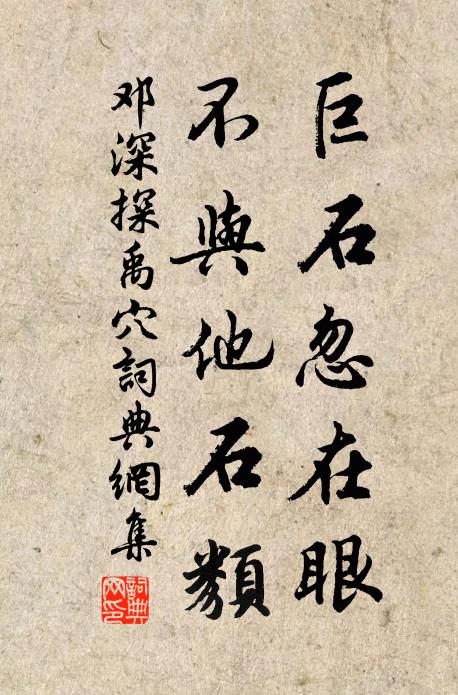 巨石忽在眼
不與他石類
邓深探禹穴詞典網集